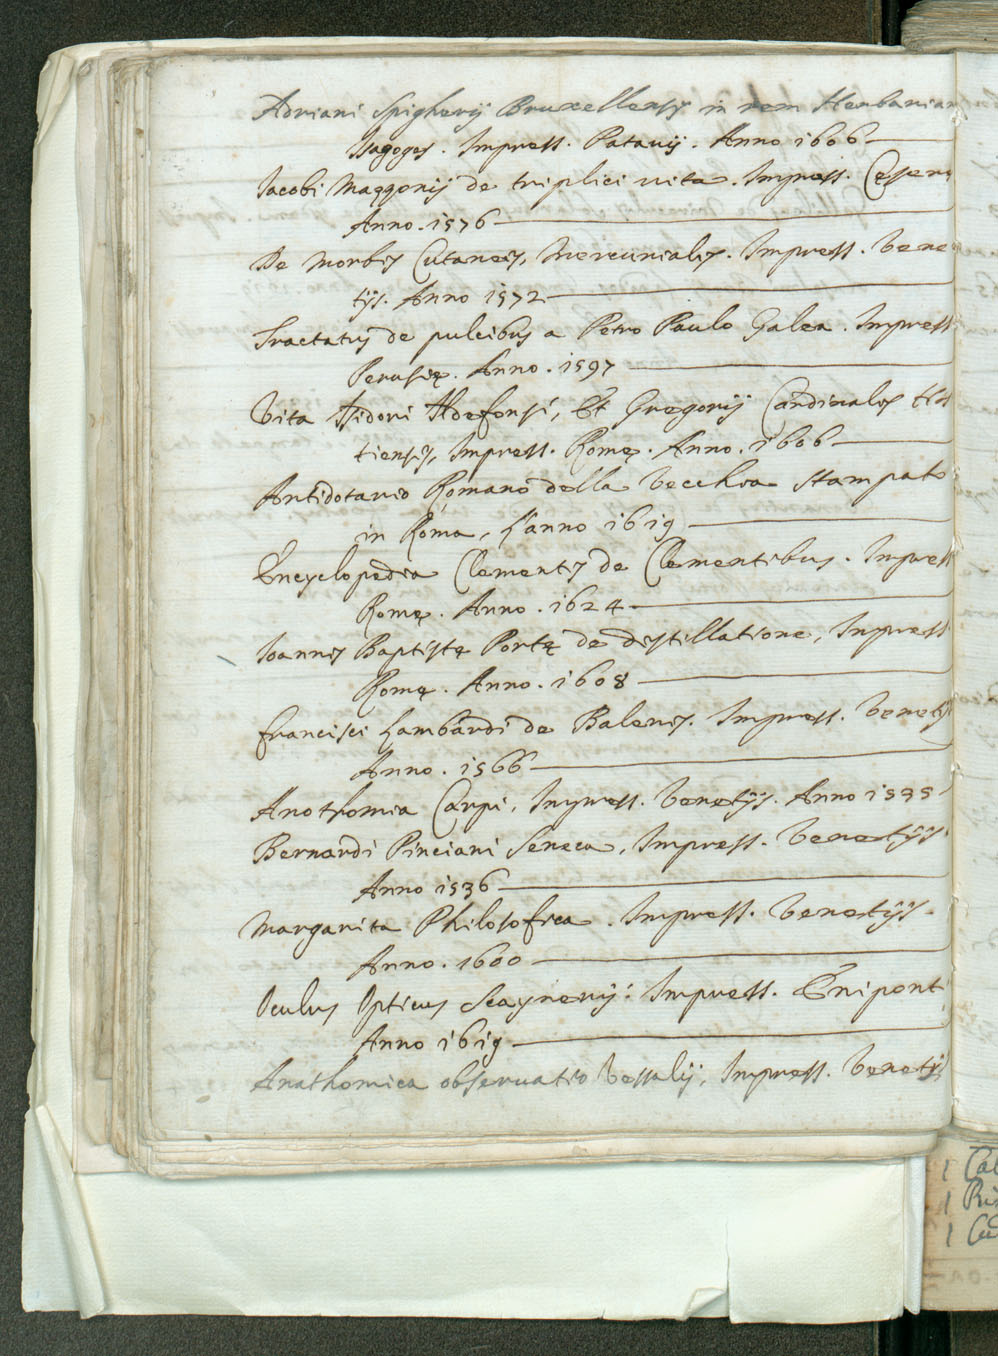 Adriani Spigherij Bruxellensis in rem Herbariam
Isagoges. Impress. Patauij. Anno 1606
Iacobi Maggonij de triplici vita. Impress. Cesenę
Anno. 1576
De Morbis Cutaneis, Mercurialis. Impress. Vene
tijs. Anno 1572
Tractatus de pulcibus a Petro Paulo Galea. Impress
Perusię. Anno. 1597
Vita Isidori Ildefonsi, Et Gregorij Cardinalis
tiensis, Impress. Romę. Anno. 1606
Antidotario Romano della Vecchia Stampato
in Roma, L'anno 1619
Encyclopedia Clementis de Clementibus. Impress
Romę. Anno. 1624
Ioannis Baptistę Portę de distillatione, Impress
Romę. Anno. 1608
Francisci Lambardi de Balenis. Impress. Venetijs
Anno. 1566
Anothomia Carpi, Impress. Venetijs. Anno 1535
Bernardi Pinciani Seneca, Impress. Venetijs.
Anno 1536
Margarita Philosofica. Impress. Venetijs.
Anno. 1600
Oculus Opticus Scaynerij: Impress. Eniponti
Anno 1619
Anathomica obseruatio Vessalij, Impress. Venetijs
1 Cal
1 Ris
1